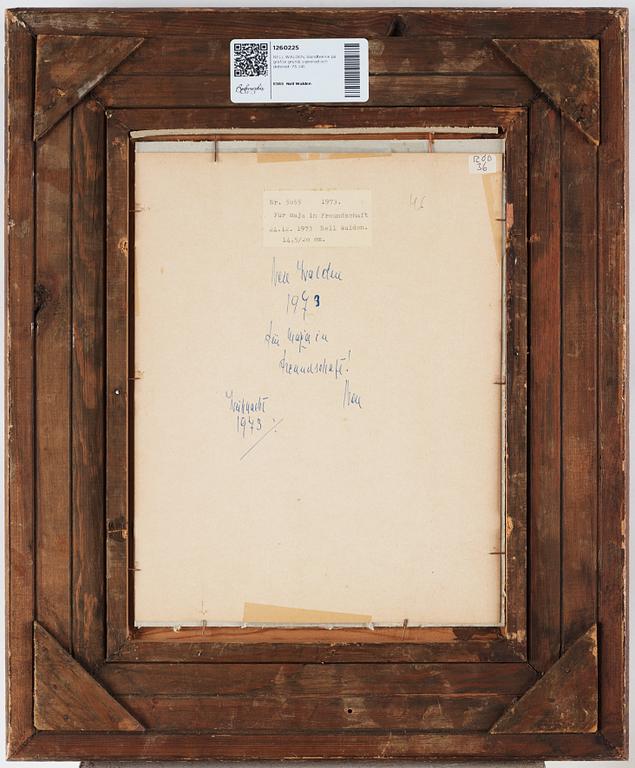 1260225
Bukowskis
Nell Walden
ROD
36
46
Nr. 5065 1973.
Für Maja in Freundschaft
24.12. 1973 Nell Walden.
14.5/20 cm.
Nell Walden
1973
Für Maja in
Freundschaft!
Nell
Weihnacht
1973